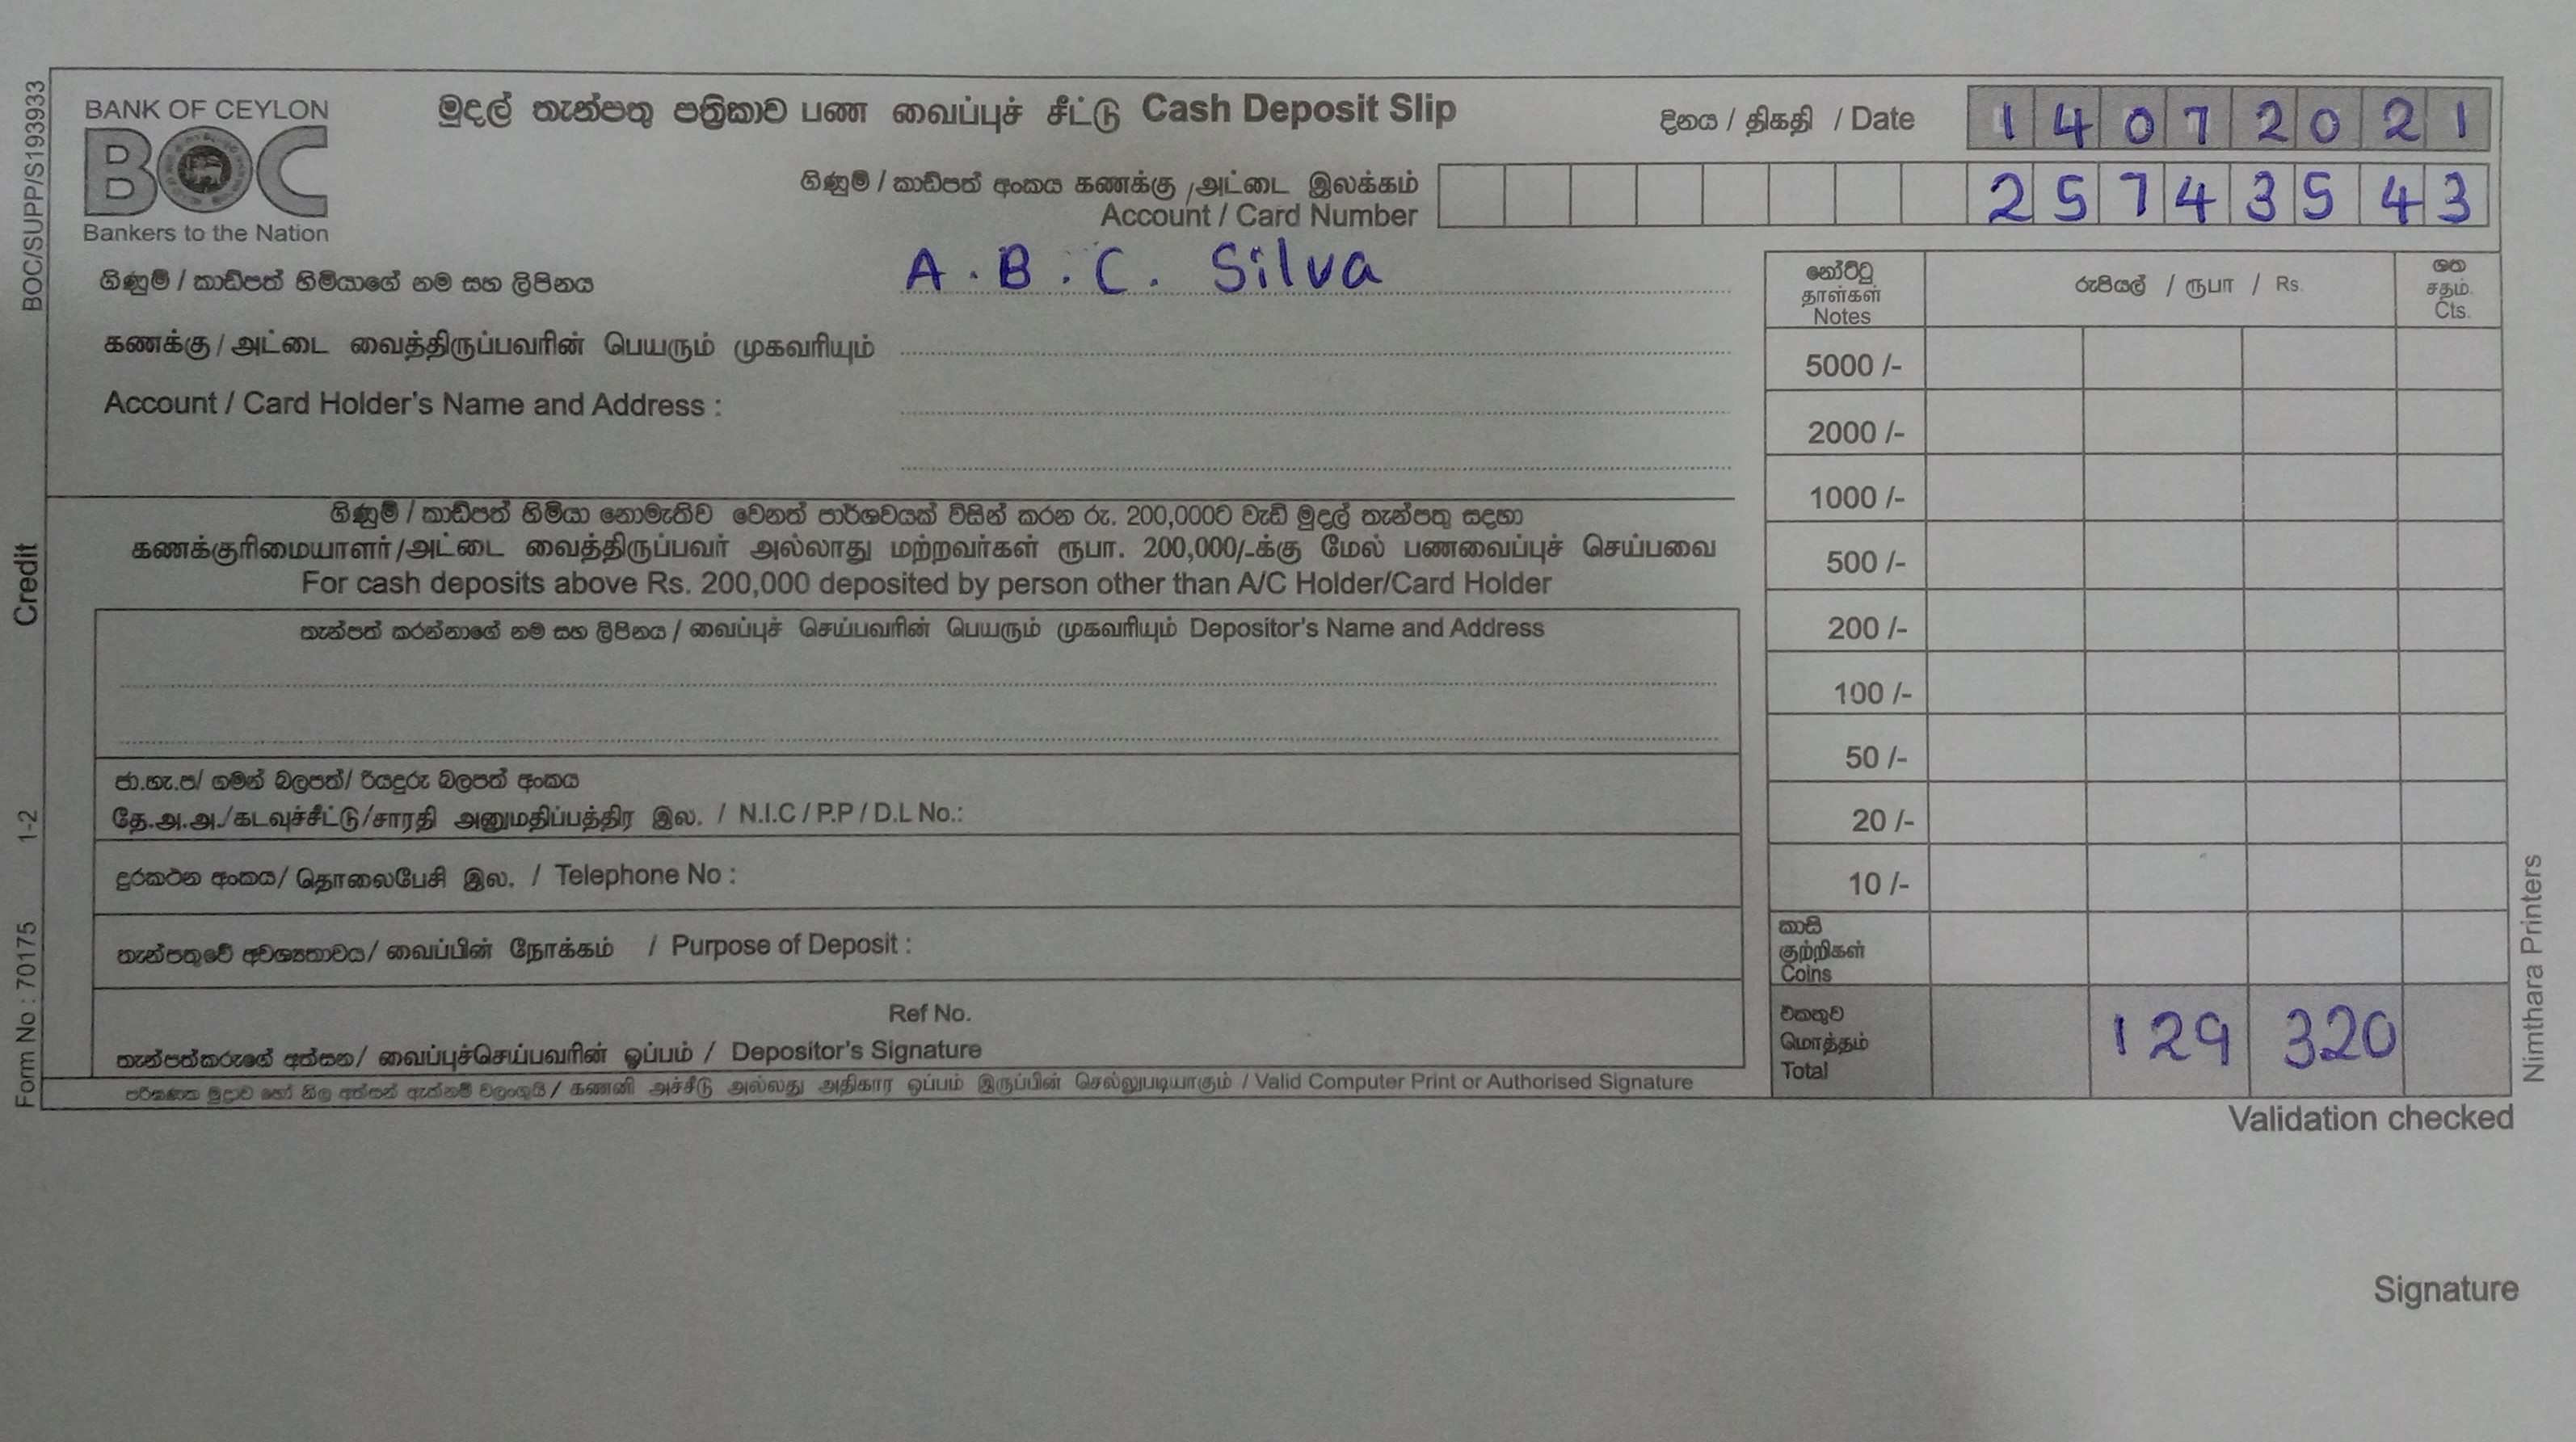 BOC/SUPP/S193933
BANK OF CEYLON
BOC
Bankers to the Nation
මුදල් තැන්පතු පත්‍රිකාව பண வைப்புச் சீட்டு Cash Deposit Slip
දිනය / திகதி / Date 1 4 0 7 2 0 2 1
ගිණුම් / කාඩ්පත් අංකය கணக்கு /அட்டை இலக்கம்
Account / Card Number 2 5 7 4 3 5 4 3
ගිණුම් / කාඩ්පත් හිමියාගේ නම සහ ලිපිනය A . B . C . Silva
கணக்கு / அட்டை வைத்திருப்பவரின் பெயரும் முகவரியும்
Account / Card Holder's Name and Address :
ගිණුම් / කාඩ්පත් හිමියා නොමැතිව වෙනත් පාර්ශවයක් විසින් කරන රු. 200,000ට වැඩි මුදල් තැන්පතු සඳහා
கணக்குரிமையாளர்/அட்டை வைத்திருப்பவர் அல்லாது மற்றவர்கள் ரூபா. 200,000/-க்கு மேல் பணவைப்புச் செய்பவை
For cash deposits above Rs. 200,000 deposited by person other than A/C Holder/Card Holder
තැන්පත් කරන්නාගේ නම සහ ලිපිනය / வைப்புச் செய்பவரின் பெயரும் முகவரியும் Depositor's Name and Address
ජා.හැ.ප/ ගමන් බලපත්/ රියදුරු බලපත් අංකය
தே.அ.அ./கடவுச்சீட்டு/சாரதி அனுமதிப்பத்திர இல. / N.I.C / P.P / D.L No.:
දුරකථන අංකය/ தொலைபேசி இல. / Telephone No :
තැන්පතුවේ අවශ්‍යතාවය/ வைப்பின் நோக்கம் / Purpose of Deposit :
Ref No.
තැන්පත්කරුගේ අත්සන/ வைப்புச்செய்பவரின் ஒப்பம் / Depositor's Signature
පරිගණක මුද්‍රාව හෝ නිල අත්සන් ඇත්නම් වලංගුයි / கணனி அச்சீடு அல்லது அதிகார ஒப்பம் இருப்பின் செல்லுபடியாகும் / Valid Computer Print or Authorised Signature
නෝට්ටු
தாள்கள்
Notes
රුපියල් / ரூபா / Rs.
ශත
சதம்.
Cts.
5000 /-
2000 /-
1000 /-
500 /-
200 /-
100 /-
50 /-
20 /-
10 /-
කාසි
குற்றிகள்
Coins
එකතුව
மொத்தம்
Total
129 320
Validation checked
Signature
Form No : 70175 1-2 Credit
Nimthara Printers